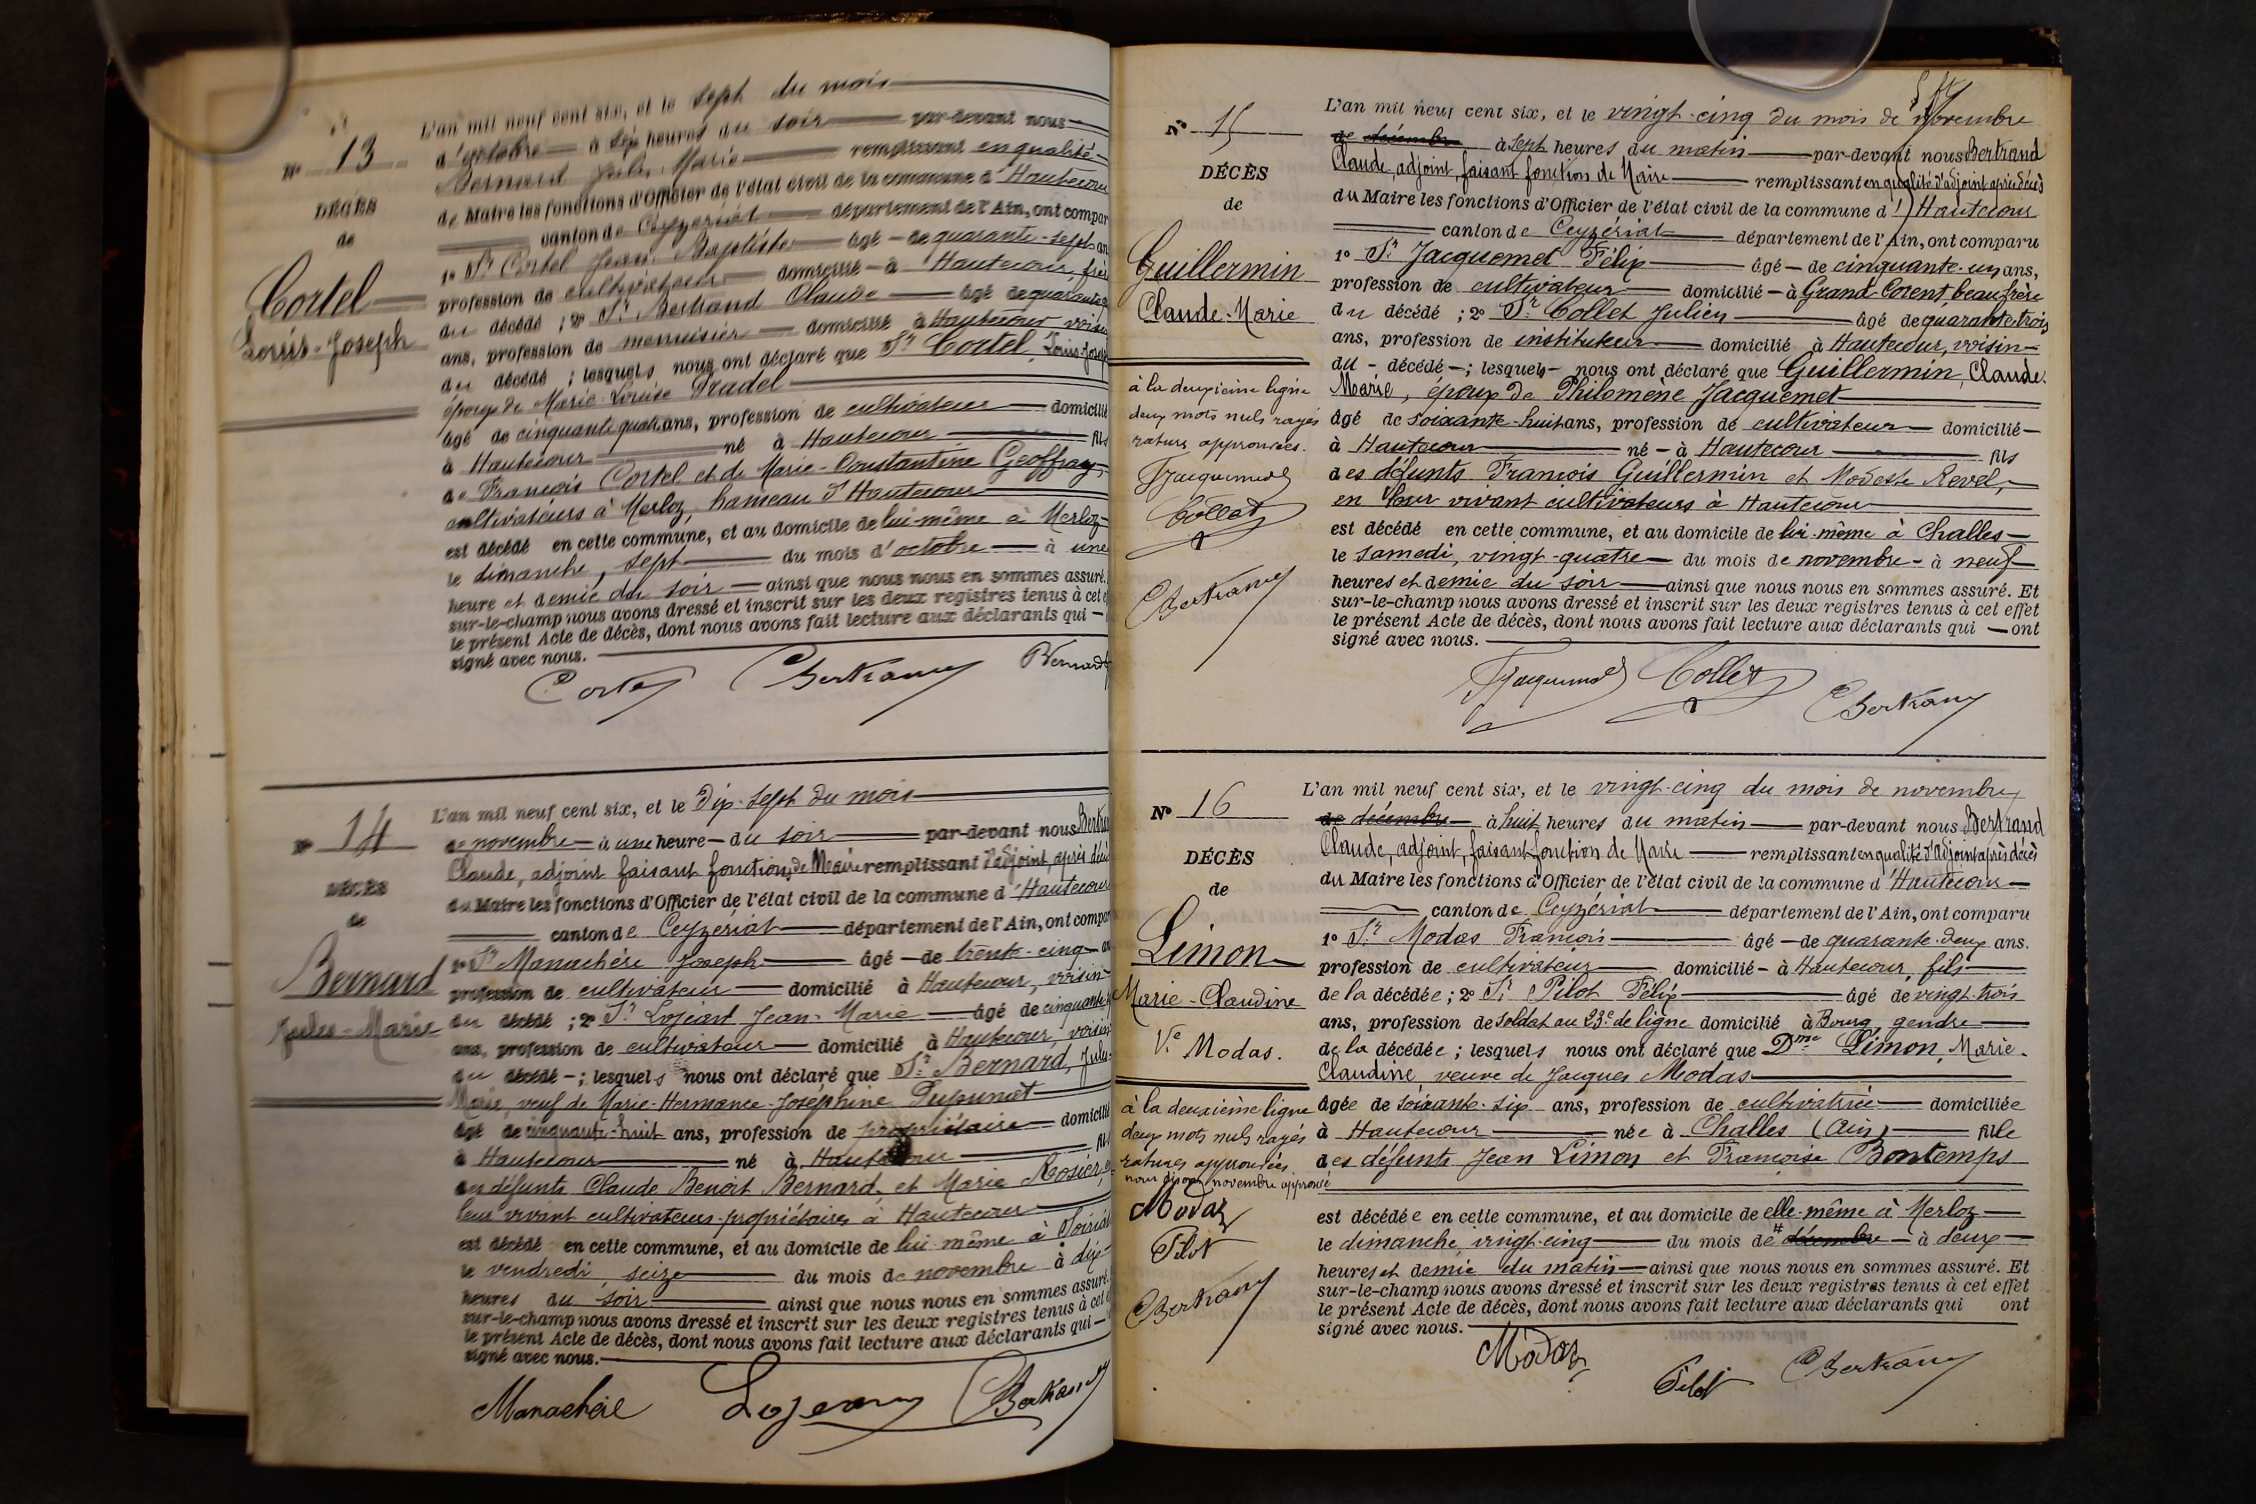 N° 13
DÉCÈS
de
Cortel
Louis-Joseph
L'an mil neuf cent six, et le sept du mois
d'octobre à sep heures du soir par-devant nous
Bernard Jules Marie remplissant en qualité
de Maire les fonctions d'Officier de l'état civil de la commune d'Hautecour
canton de Ceyzériat département de l'Ain, ont compar
1° Sr Cortel Jean Baptiste âgé de quarante-sept an
profession de cultivateur domicilié à Hautecour, frère
du décédé ; 2° Sr Bertrand Claude âgé de quarante
ans, profession de menuisier domicilié à Hautecour voisin
du décédé ; lesquels nous ont déclaré que Sr Cortel, Louis-Joseph
époux de Marie-Louise Pradel
âgé de cinquante quatre ans, profession de cultivateur domicilié
à Hautecour né à Hautecour fils
de François Cortel et de Marie-Constantine Geoffray,
cultivateurs à Merloz, hameau d'Hautecour
est décédé en cette commune, et au domicile de lui-même à Merloz
le dimanche, sept du mois d'octobre à une
heure et demie du soir ainsi que nous nous en sommes assuré.
sur-le-champ nous avons dressé et inscrit sur les deux registres tenus à cet e
le présent Acte de décès, dont nous avons fait lecture aux déclarants qui
signé avec nous.
Cortel CBertrand Bernard
N° 14
DÉCÈS
de
Bernard
Jules-Marie
L'an mil neuf cent six, et le Dix-sept du mois
de novembre à une heure du soir par-devant nous Bertran
Claude, adjoint faisant fonctions de Maire remplissant d'adjoint, après décè
du Maire les fonctions d'Officier de l'état civil de la commune d'Hautecour
canton de Ceyzériat département de l'Ain, ont compar
1° Sr Manachère Joseph âgé de trente-cinq an
profession de cultivateur domicilié à Hautecour, voisin
du décédé ; 2° Sr Lojeant Jean-Marie âgé de cinquante
ans, profession de cultivateur domicilié à Hautecour, voisin
du décédé ; lesquels nous ont déclaré que Sr Bernard, Jules
Marie, veuf de Marie-Hermance-Joséphine
âgé de cinquante-huit ans, profession de propriétaire domicilié
à Hautecour né à Hautecour fils
des défunts Claude Benoît Bernard, et Marie Rosier, en
leur vivant cultivateurs-propriétaires à Hautecour
est décédé en cette commune, et au domicile de lui-même à
le vendredi, seize du mois de novembre à dix
heures du soir ainsi que nous nous en sommes assuré.
sur-le-champ nous avons dressé et inscrit sur les deux registres tenus à cet e
le présent Acte de décès, dont nous avons fait lecture aux déclarants qui
signé avec nous.
Manachère Lojean CBertrand
N° 15
DÉCÈS
de
Guillermin
Claude-Marie
à la deuxième ligne
deux mots nuls rayés
rature approuvées.
FJacquemet
Collet
CBertrand
L'an mil neuf cent six, et le vingt-cinq du mois de novembre
de décembre à sept heures du matin par-devant nous Bertrand
Claude, adjoint, faisant fonction de Maire remplissant en qualité d'adjoint après décès
du Maire les fonctions d'Officier de l'état civil de la commune d'Hautecour
canton de Ceyzériat département de l'Ain, ont comparu
1° Sr Jacquemet Félix âgé de cinquante-un ans,
profession de cultivateur domicilié à Grand-Corent, beau frère
du décédé ; 2° Sr Collet Julien âgé de quarante-trois
ans, profession de instituteur domicilié à Hautecour, voisin
du décédé ; lesquels nous ont déclaré que Guillermin, Claude-
Marie, époux de Philomène Jacquemet
âgé de soixante-huit ans, profession de cultivateur domicilié
à Hautecour né à Hautecour fils
des défunts François Guillermin et Modeste Revel,
en leur vivant cultivateurs à Hautecour
est décédé en cette commune, et au domicile de lui-même à Challes
le samedi, vingt-quatre du mois de novembre à neuf
heures et demie du soir ainsi que nous nous en sommes assuré. Et
sur-le-champ nous avons dressé et inscrit sur les deux registres tenus à cet effet
le présent Acte de décès, dont nous avons fait lecture aux déclarants qui ont
signé avec nous.
FJacquemet Collet CBertrand
N° 16
DÉCÈS
de
Limon
Marie-Claudine
Ve Modas.
à la deuxième ligne
deux mots nuls rayés
ratures approuvées.
novembre approuvé
Modas
Pilot
CBertrand
L'an mil neuf cent six, et le vingt-cinq du mois de novembre
de décembre à huit heures du matin par-devant nous Bertrand
Claude, adjoint, faisant fonction de Maire remplissant en qualité d'adjoint après décès
du Maire les fonctions d'Officier de l'état civil de la commune d'Hautecour
canton de Ceyzériat département de l'Ain, ont comparu
1° Sr Modas François âgé de quarante-deux ans.
profession de cultivateur domicilié à Hautecour, fils
de la décédée ; 2° Sr Pilot Félix âgé de vingt-trois
ans, profession de soldat au 23e de ligne domicilié à Bourg, gendre
de la décédée ; lesquels nous ont déclaré que Dme Limon, Marie-
Claudine, veuve de Jacques Modas
âgée de soixante-six ans, profession de cultivatrice domiciliée
à Hautecour née à Challes (Ain) fille
des défunts Jean Limon et Françoise Bontemps
est décédée en cette commune, et au domicile de elle-même à Merloz
le dimanche vingt-cinq du mois de décembre à deux
heures et demie du matin ainsi que nous nous en sommes assuré. Et
sur-le-champ nous avons dressé et inscrit sur les deux registres tenus à cet effet
le présent Acte de décès, dont nous avons fait lecture aux déclarants qui ont
signé avec nous.
Modas Pilot CBertrand